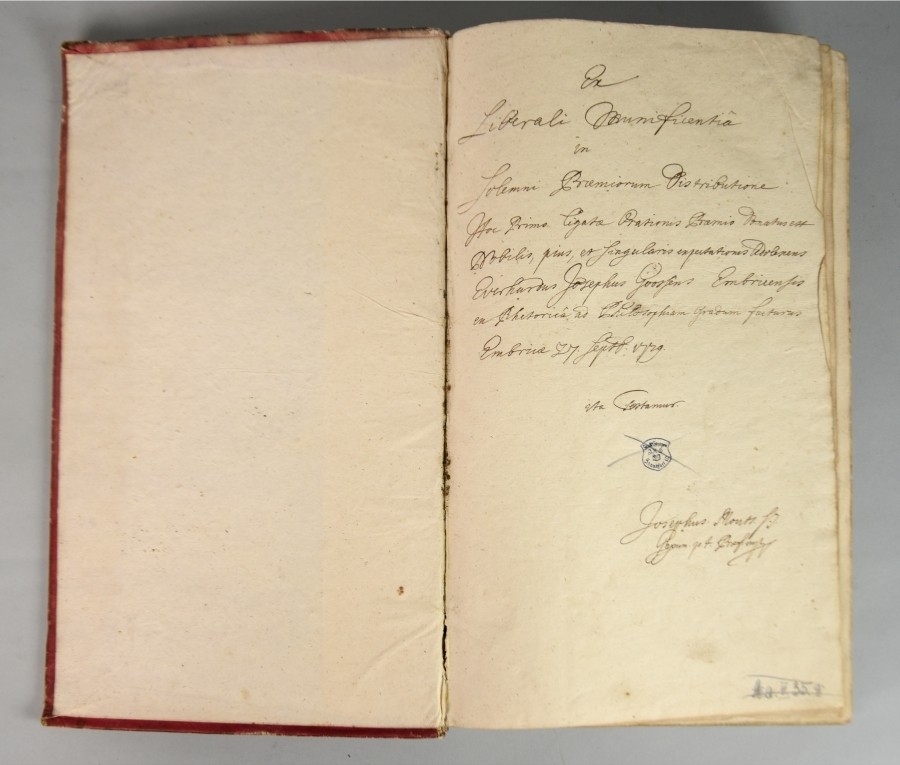 Ex
Liberali Munificentiâ
in
Solemni Præmiorum Distributione
Hoc Primo ligatæ Orationis Præmio Donatus est
Nobilis, pius, et singularis expectationis Adolescens
Everhardus Josephus Goossens Embricensis
ex Rhetoricâ ad Philosophiam gradum facturus
Embricæ 27. Septb. 1729.
ita Testamur
Josephus SJ
Gymn. p.t. Præfectus